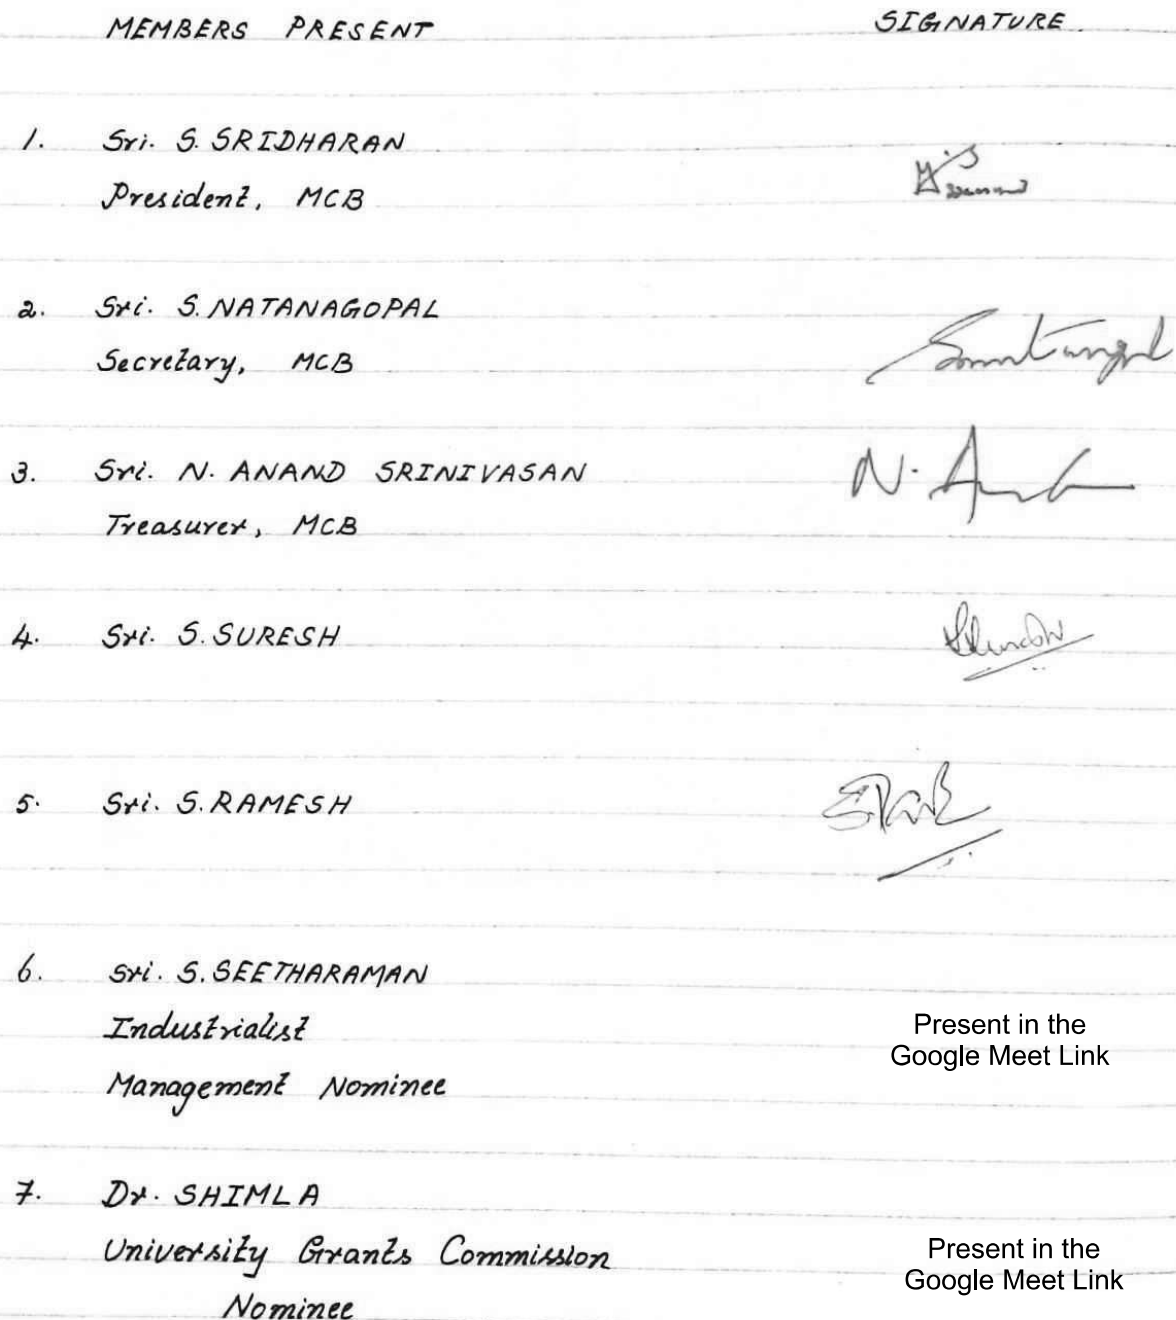 MEMBERS PRESENT SIGNATURE
1. Sri. S. SRIDHARAN
President, MCB
2. Sri. S. NATANAGOPAL
Secretary, MCB
3. Sri. N. ANAND SRINIVASAN
Treasurer, MCB
4. Sri. S. SURESH
5. Sri. S. RAMESH
6. Sri. S. SEETHARAMAN
Industrialist
Present in the
Google Meet Link
Management Nominee
7. Dr. SHIMLA
University Grants Commission
Present in the
Google Meet Link
Nominee